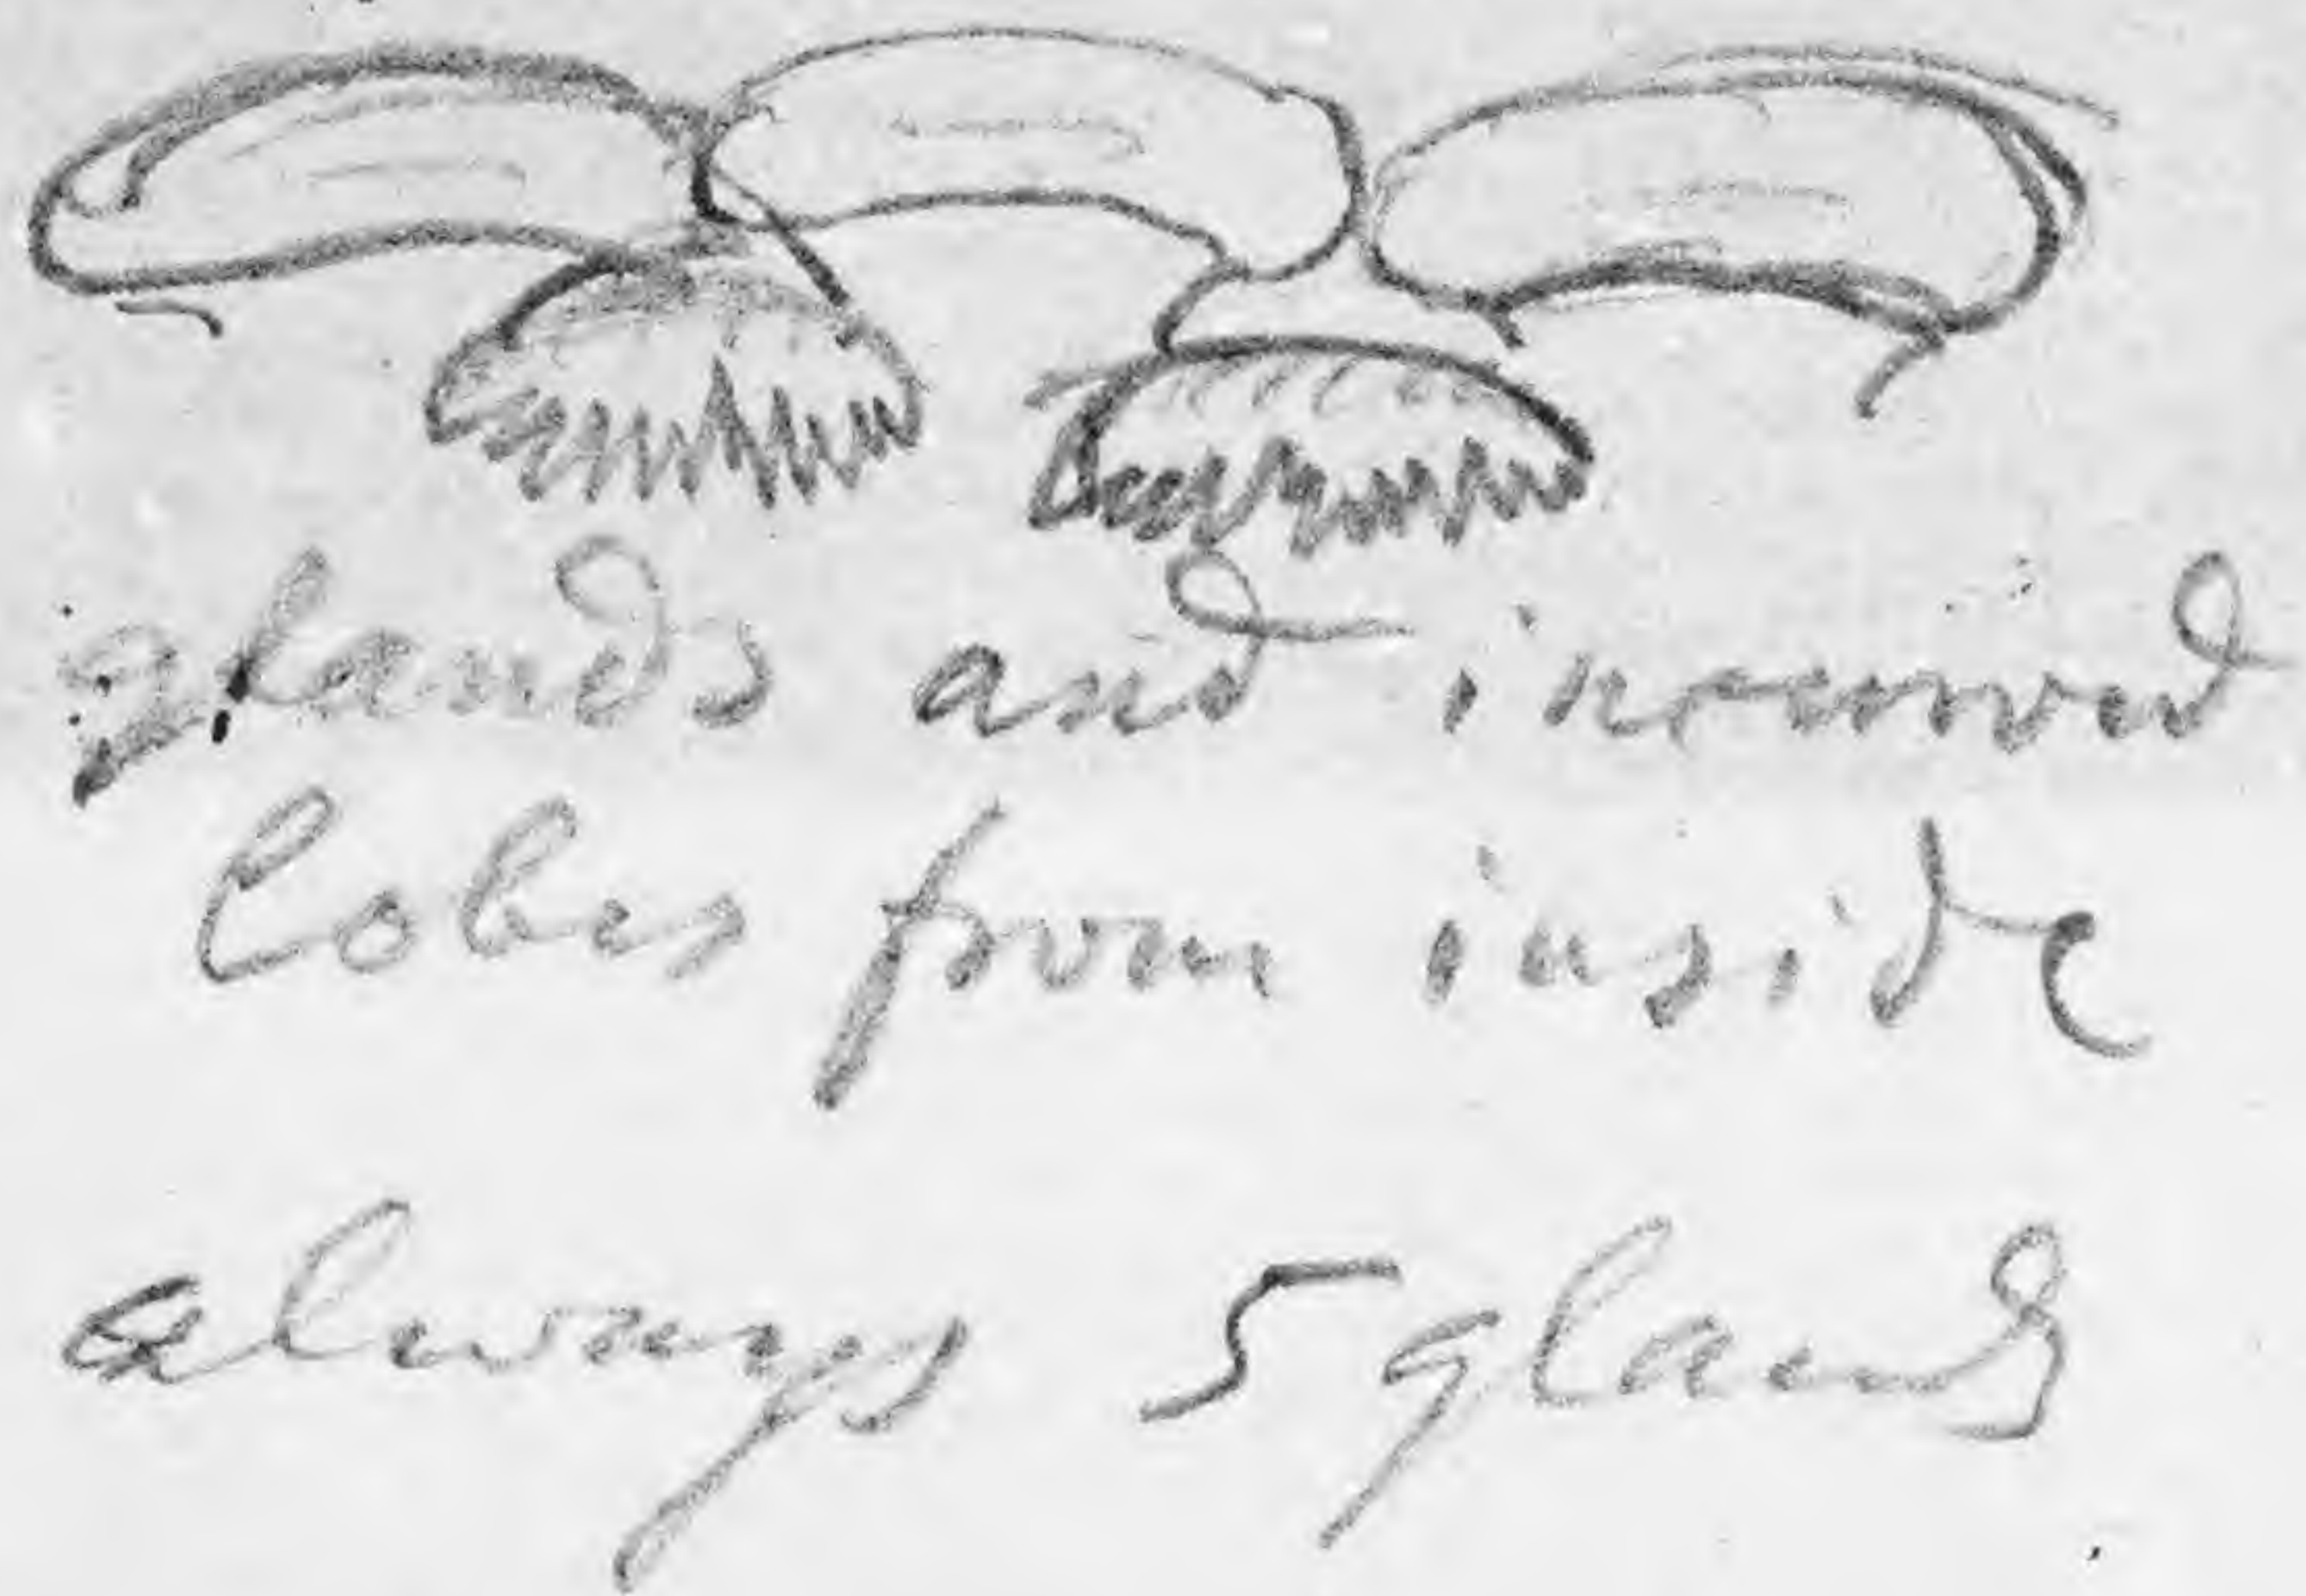 glands and incurved
lobes from inside
always 5 glands